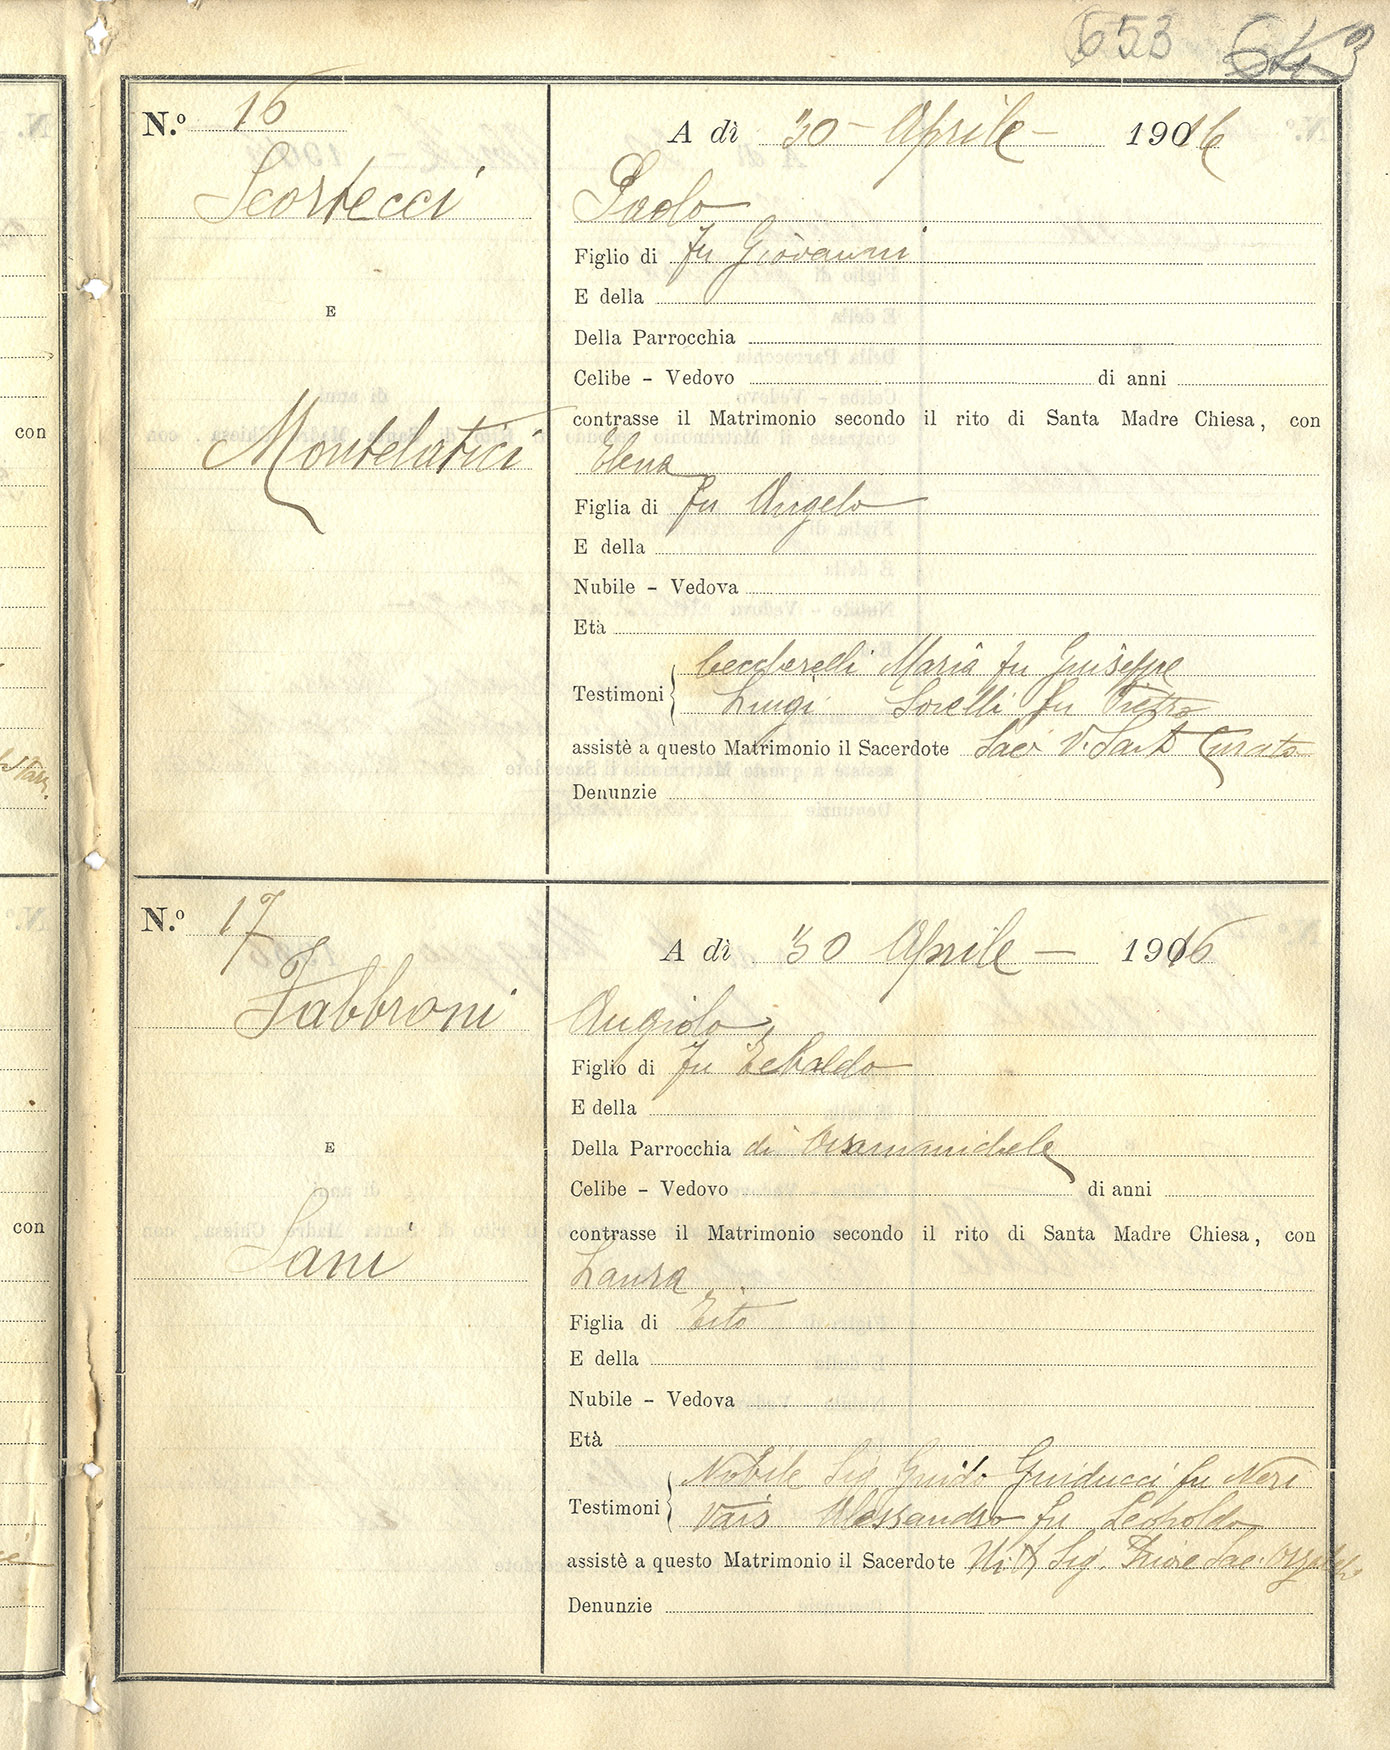 653
N.º 16
A dì 30 - Aprile - 1916
Scortecci
Paolo
Figlio di fu Giovanni
E della
E
Della Parrocchia
Celibe - Vedovo di anni
con
contrasse il Matrimonio secondo il rito di Santa Madre Chiesa, con
Montelatici
Elena
Figlia di fu Angelo
E della
Nubile - Vedova
Età
Testimoni
Ceccherelli Maria fu Giuseppe
Luigi Sorelli fu Pietro
assistè a questo Matrimonio il Sacerdote Sac. V. Curato
Denunzie
N.º 17
A dì 30 Aprile - 1916
Fabbroni
Angiolo
Figlio di fu Tebaldo
E della
E
Della Parrocchia di Orsanmichele
Celibe - Vedovo di anni
con
contrasse il Matrimonio secondo il rito di Santa Madre Chiesa, con
Sani
Laura
Figlia di Tito
E della
Nubile - Vedova
Età
Testimoni
Nobile Sig Guido Guiducci fu Neri
Vais Alessandro fu Leopoldo
assistè a questo Matrimonio il Sacerdote Sig. Priore Sac.
Denunzie